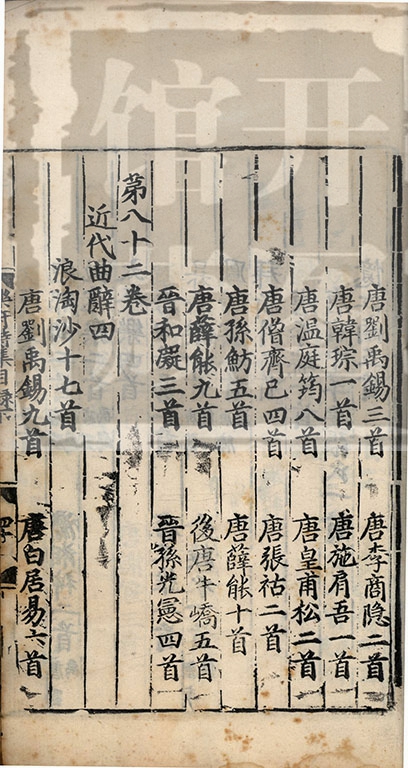 唐劉禹錫三首 唐李商隐二首
唐韓琮一首 唐施肩吾一首
唐温庭筠八首 唐皇甫松二首
唐僧齊已四首 唐張祜二首
唐孫魴五首 唐薛能十首
唐薛能九首 後唐牛嶠五首
晉和凝三首 晉孫光憲四首
第八十二卷
近代曲辭四
浪淘沙十七首
唐劉禹錫九首 唐白居易六首